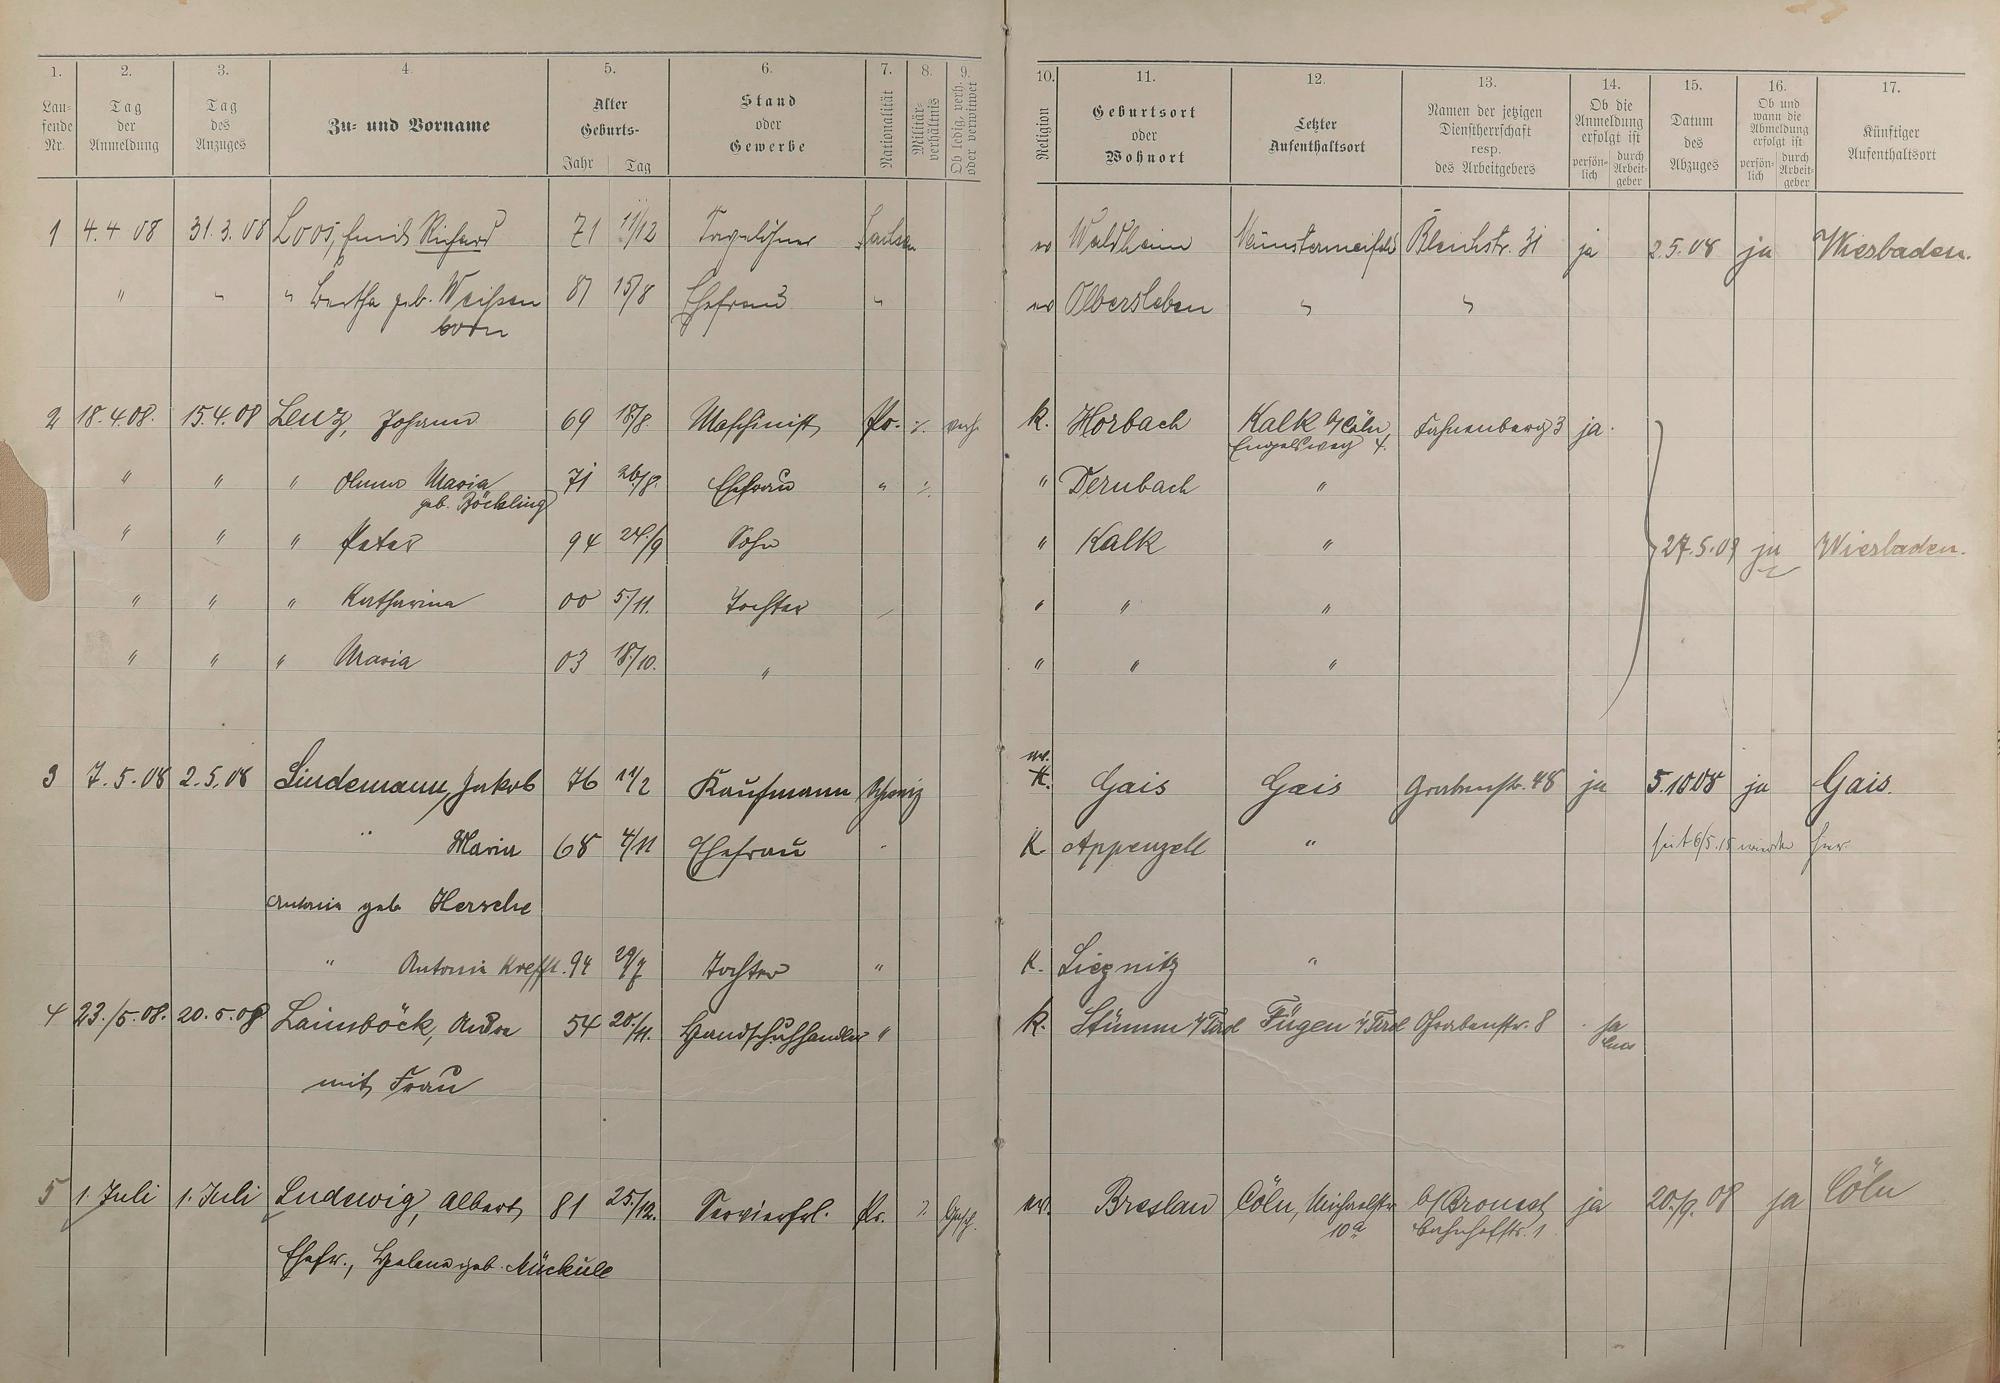 1. 2. 3. 4. 5. 6. 7. 8. 9. 10. 11. 12. 13. 14. 15. 16. 17.
Lau-
fende
Nr.
Tag
der
Anmeldung
Tag
des
Anzuges
Zu- und Vorname
Alter
Geburts-
Jahr Tag
Stand
oder
Gewerbe
Nationalität
Militär-
verhältnis
Ob ledig, verh.
oder verwitwet
Religion
Geburtsort
oder
Wohnort
Letzter
Aufenthaltsort
Namen der jetzigen
Dienstherrschaft
resp.
des Arbeitgebers
Ob die
Anmeldung
erfolgt ist
persön-
lich
durch
Arbeit-
geber
Datum
des
Abzuges
Ob und
wann die
Abmeldung
erfolgt ist
persön-
lich
durch
Arbeit-
geber
Künftiger
Aufenthaltsort
1 4.4 08 31.3.08 Loos, Emil Richard 71 11/12 Tagelöhner Sachsen Waldheim Münstermeifeld Bleichstr. 31 ja 2.5.08 ja Wiesbaden.
" " " Bertha geb. Weißen 87 15/8 Ehefrau " Olbersleben " "
born
2 18.4.08. 15.4.08 Lenz, Johann 69 18/8. Maschinist Pr. ⁒ verh. k. Horbach Kalk b/Cöln Fahnenberg 3 ja.
Engelsweg 4.
" " " Maria 71 26/8. Ehefrau " ⁒ " Dernbach "
geb. Böckling
" " " Peter 94 24./9 Sohn " Kalk " 27.5.09 ja Wiesbaden.
" " " Katharina 00 5./11. Tochter " " "
" " " Maria 03 18./10. " " " "
3 7.5.08 2.5.08 Lindemann, Jakob 76 11/2 Kaufmann Schweiz K. Gais Gais Grabenstr. 48 ja 5.10 08 ja Gais.
" Maria 68 4/11 Ehefrau " K Appenzell " seit 6/5.15 wieder hier
Antonia geb Hersche
" Antonia 94 29/7 Tochter " K. Liegnitz "
4 23./5.08. 20.5.08 Laimböck, Andre 54 20./11. Handschuhhändler " k. Stumm i/Tirol Fügen i/Tirol Grabenstr. 8 ja
mit Frau
5 1. Juli 1. Juli Ludewig, Albert 81 25./12. Servierfrl. Pr. ⁒ Gesch. ev. Breslau Cöln, Michaelstr b/ ja 20./9. 08 ja Cöln
10a Bahnhofstr. 1
Ehefr., Helene geb. Nückule